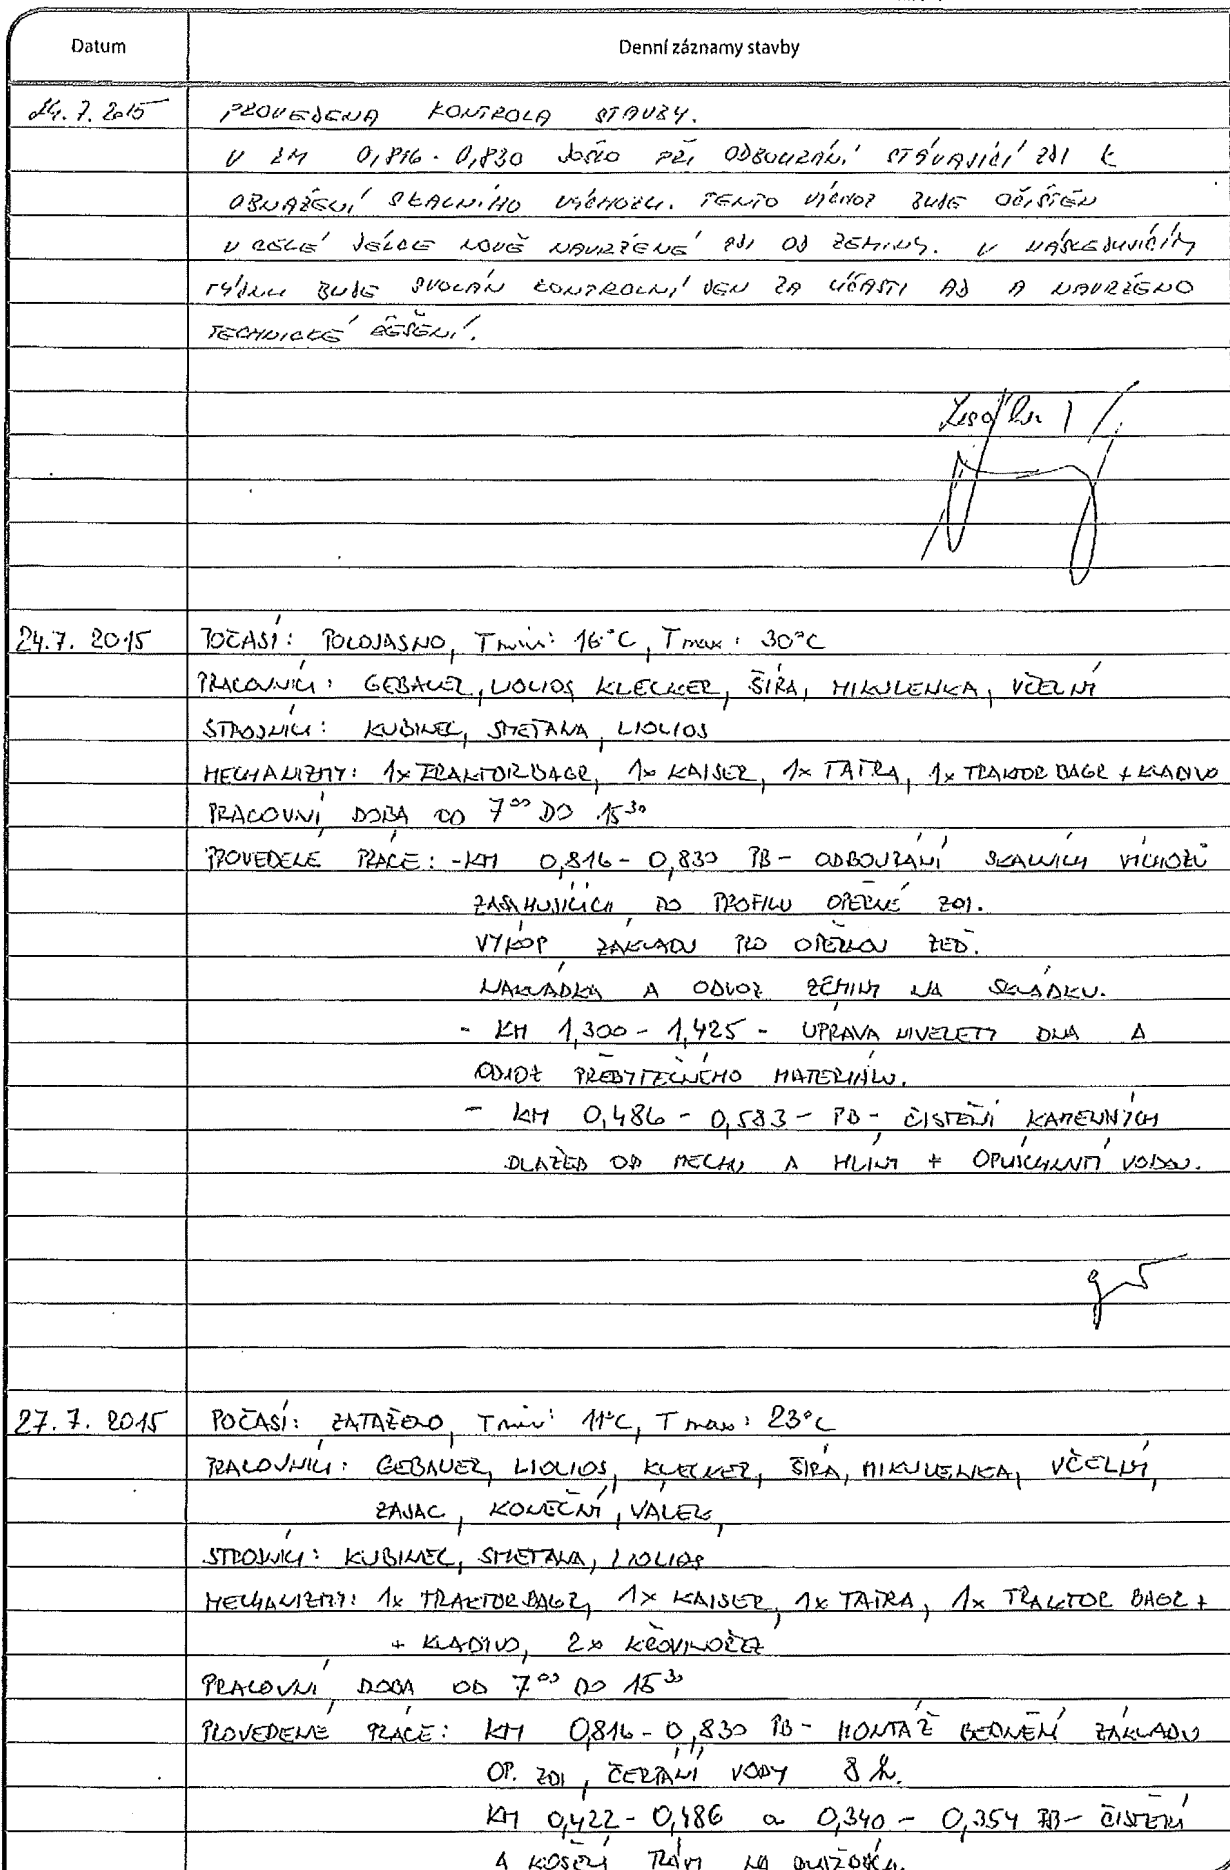 Datum
Denní záznamy stavby
24. 7. 2015 PROVEDENA KONTROLA STAVBY.
V KM 0,816 - 0,830 DOŠLO PŘI ODBOURÁNÍ STÁVAJÍCÍ ZDI K
OBNAŽENÍ SKALNÍHO VÝCHOZU. TENTO VÝCHOZ BUDE OČIŠTĚN
V CELÉ DÉLCE NOVĚ NAVRŽENÉ ZDI OD ZEMINY. V NÁSLEDUJÍCÍM
TÝDNU BUDE SVOLÁN KONTROLNÍ DEN ZA ÚČASTI AD A NAVRŽENO
TECHNICKÉ ŘEŠENÍ.
24.7. 2015 POČASÍ: POLOJASNO, Tmin: 16°C, Tmax: 30°C
PRACOVNÍCI: GEBAUER, LIOLIOS KLECKER, ŠÍRA, MIKULENKA, VČELNÝ
STROJNÍCI: KUBINEC, SMETANA, LIOLIOS
MECHANIZMY: 1x TRAKTORBAGR, 1x KAISER, 1x TATRA, 1x TRAKTOR BAGR + KLADIVO
PRACOVNÍ DOBA OD 7⁰⁰ DO 15³⁰
PROVEDELE PRÁCE: - KM 0,816 - 0,830 PB - ODBOURÁNÍ SKALNÍCH VÝCHOZŮ
ZASAHUJÍCÍCH DO PROFILU OPĚRNÉ ZDI.
VÝKOP ZÁKLADU PRO OPĚRNOU ZEĎ.
NAKLÁDKA A ODVOZ ZEMINY NA SKLÁDKU.
- KM 1,300 - 1,425 - ÚPRAVA NIVELETY DNA A
ODVOZ PŘEBYTEČNÉHO MATERIÁLU.
- KM 0,486 - 0,583 - PB - ČISTĚNÍ KAMENNÝCH
DLAŽEB OD MECHU A HLÍNY + OPLÁCHNUTÍ VODOU.
27. 7. 2015 POČASÍ: ZATAŽENO, Tmin: 11°C, Tmax: 23°C
PRACOVNÍCI: GEBAUER, LIOLIOS, KLECKER, ŠÍRA, MIKULENKA, VČELNÝ,
ZAJAC, KONEČNÝ, VALEK,
STROJNÍCI: KUBINEC, SMETANA, LIOLIOS
MECHANIZMY: 1x TRAKTORBAGR, 1x KAISER, 1x TATRA, 1x TRAKTOR BAGR +
+ KLADIVO, 2x KŘOVINOŘEZ
PRACOVNÍ DOBA OD 7⁰⁰ DO 15³⁰
PROVEDENÉ PRÁCE: KM 0,816 - 0,830 PB - MONTÁŽ BEDNĚNÍ ZÁKLADU
OP. ZDI, ČERPÁNÍ VODY 8 h.
KM 0,422 - 0,486 a 0,340 - 0,354 PB - ČISTĚNÍ
A KOSENÍ TRÁVY NA DLAŽBÁCH.